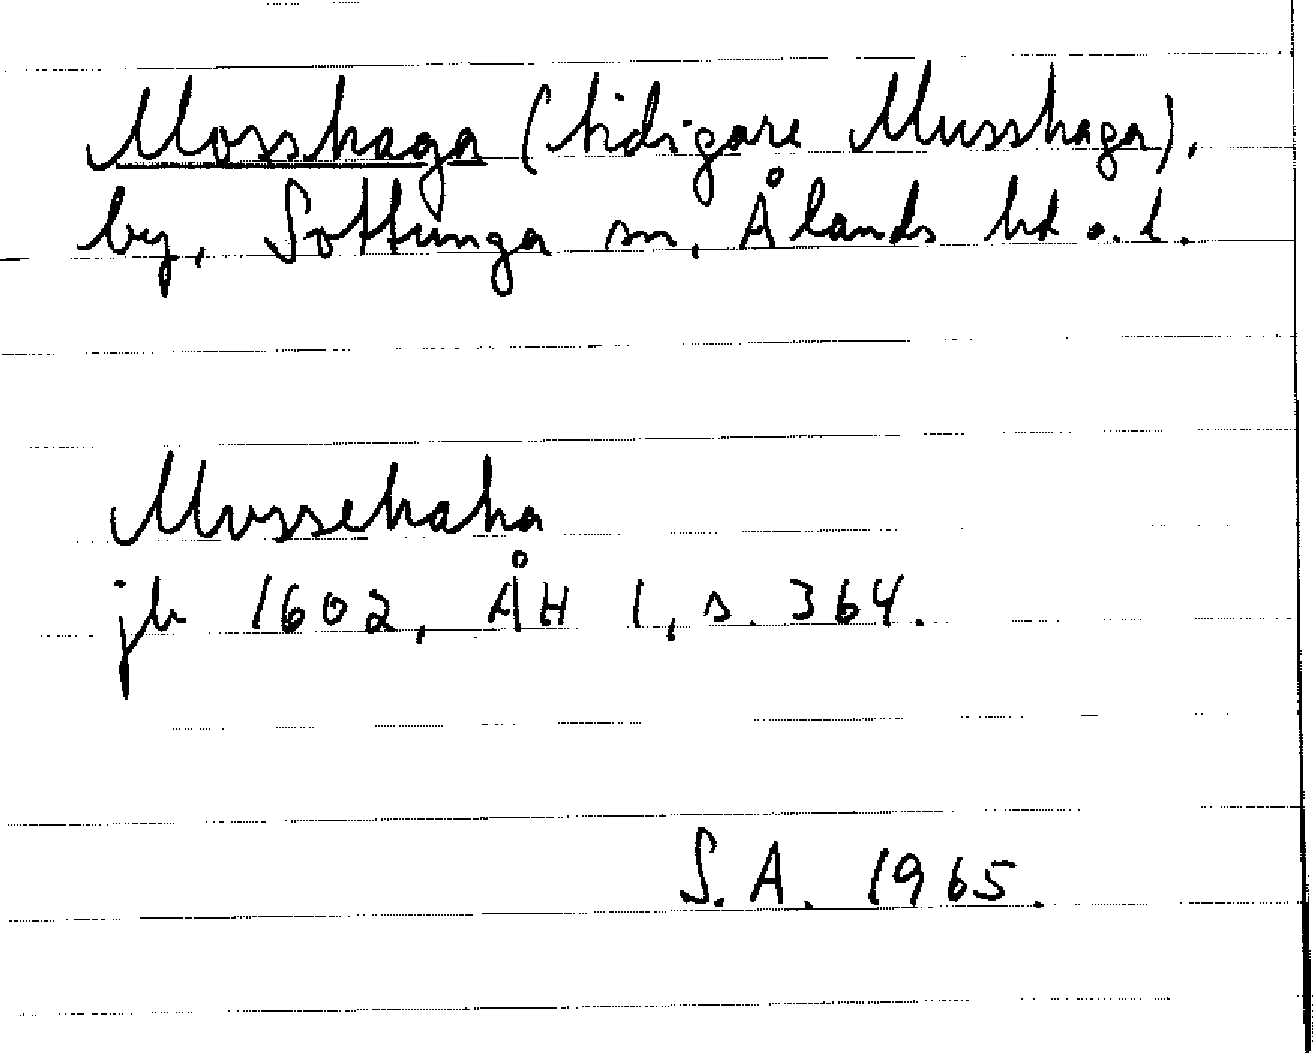 Mosshaga (tidigare Musshaga),
by, Sottunga sn, Ålands hd o. l.
Mussehaka
jb 1602, ÅH 1, s. 364.
S. A. 1965.